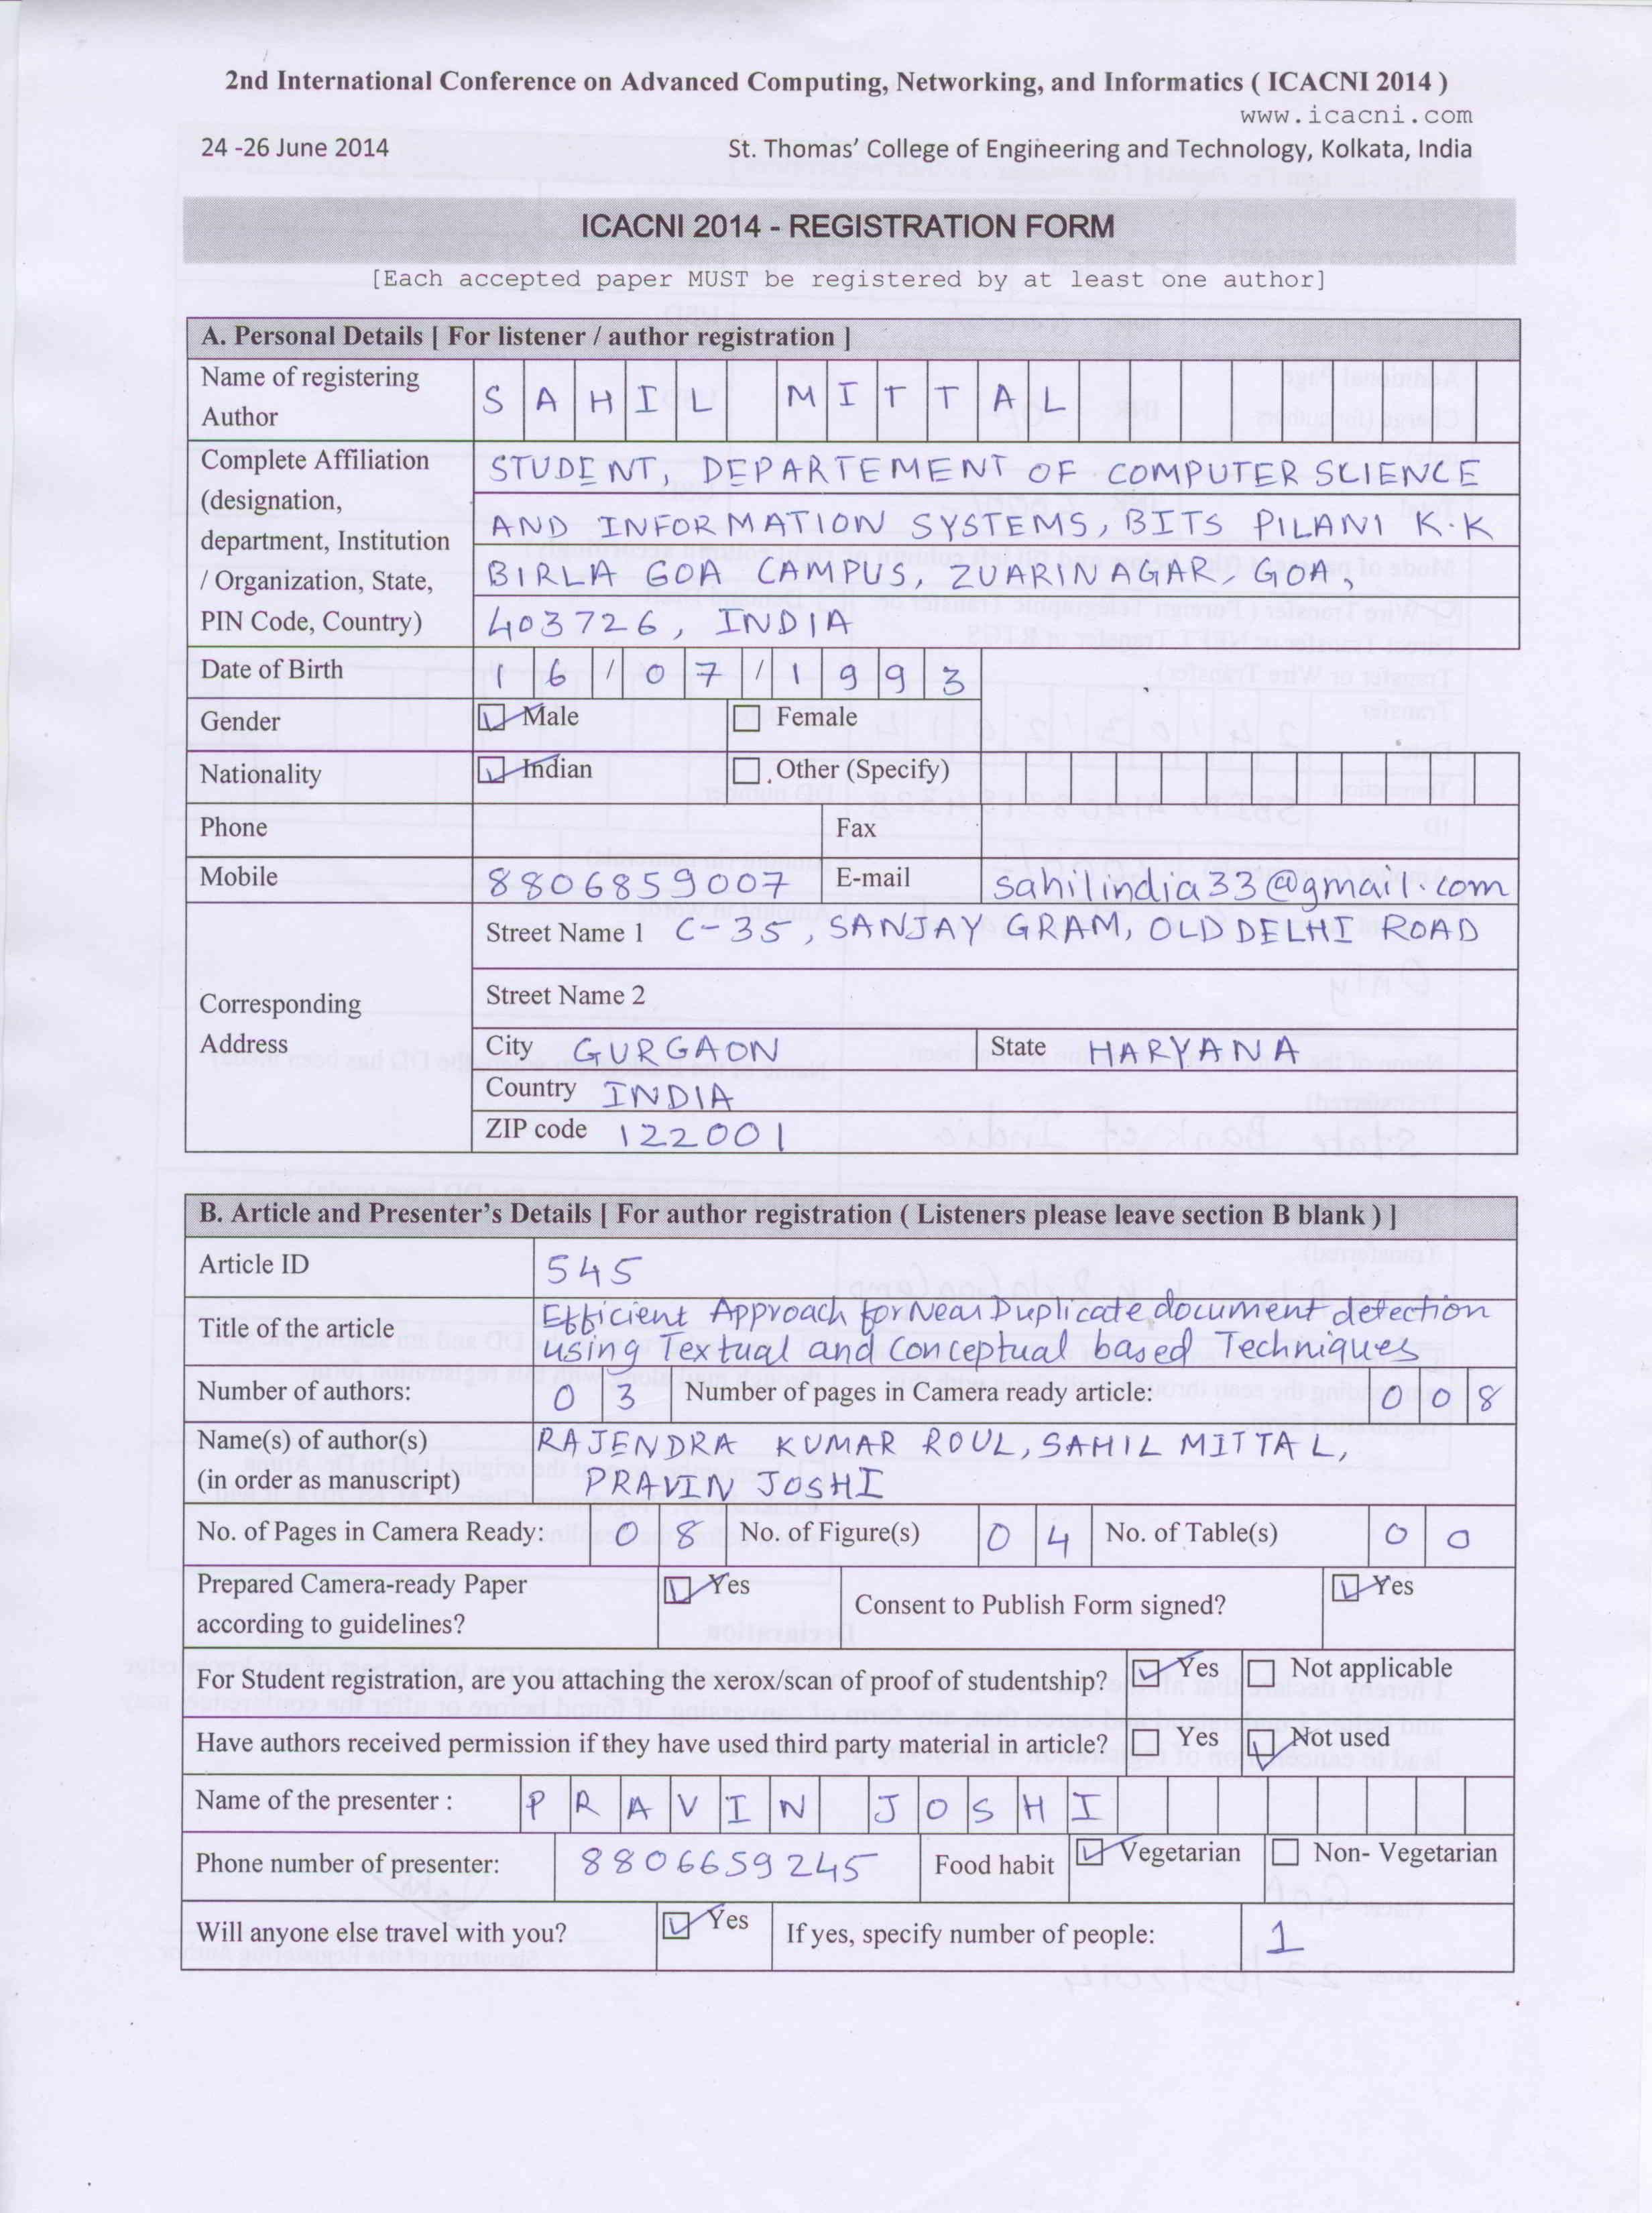 2nd International Conference on Advanced Computing, Networking, and Informatics ( ICACNI 2014 )
www.icacni.com
24 -26 June 2014 St. Thomas' College of Engineering and Technology, Kolkata, India
ICACNI 2014 - REGISTRATION FORM
[Each accepted paper MUST be registered by at least one author]
A. Personal Details [ For listener / author registration ]
Name of registering Author SAHIL MITTAL
Complete Affiliation STUDENT, DEPARTEMENT OF COMPUTER SCIENCE
(designation, AND INFORMATION SYSTEMS, BITS PILANI K.K
department, Institution BIRLA GOA CAMPUS, ZUARINAGAR, GOA,
/ Organization, State, 403726, INDIA
PIN Code, Country)
Date of Birth 16/07/1993
Gender Male Female
Nationality Indian Other (Specify)
Phone Fax
Mobile 8806859007 E-mail sahilindia33@gmail.com
Corresponding Address
Street Name 1 C-35, SANJAY GRAM, OLD DELHI ROAD
Street Name 2
City GURGAON State HARYANA
Country INDIA
ZIP code 122001
B. Article and Presenter's Details [ For author registration ( Listeners please leave section B blank ) ]
Article ID 545
Title of the article Efficient Approach for Near Duplicate document detection
using Textual and Conceptual based Techniques
Number of authors: 03 Number of pages in Camera ready article: 008
Name(s) of author(s) RAJENDRA KUMAR ROUL, SAHIL MITTAL,
(in order as manuscript) PRAVIN JOSHI
No. of Pages in Camera Ready: 08 No. of Figure(s) 04 No. of Table(s) 00
Prepared Camera-ready Paper according to guidelines? Yes Consent to Publish Form signed? Yes
For Student registration, are you attaching the xerox/scan of proof of studentship? Yes Not applicable
Have authors received permission if they have used third party material in article? Yes Not used
Name of the presenter : PRAVIN JOSHI
Phone number of presenter: 8806659245 Food habit Vegetarian Non- Vegetarian
Will anyone else travel with you? Yes If yes, specify number of people: 1